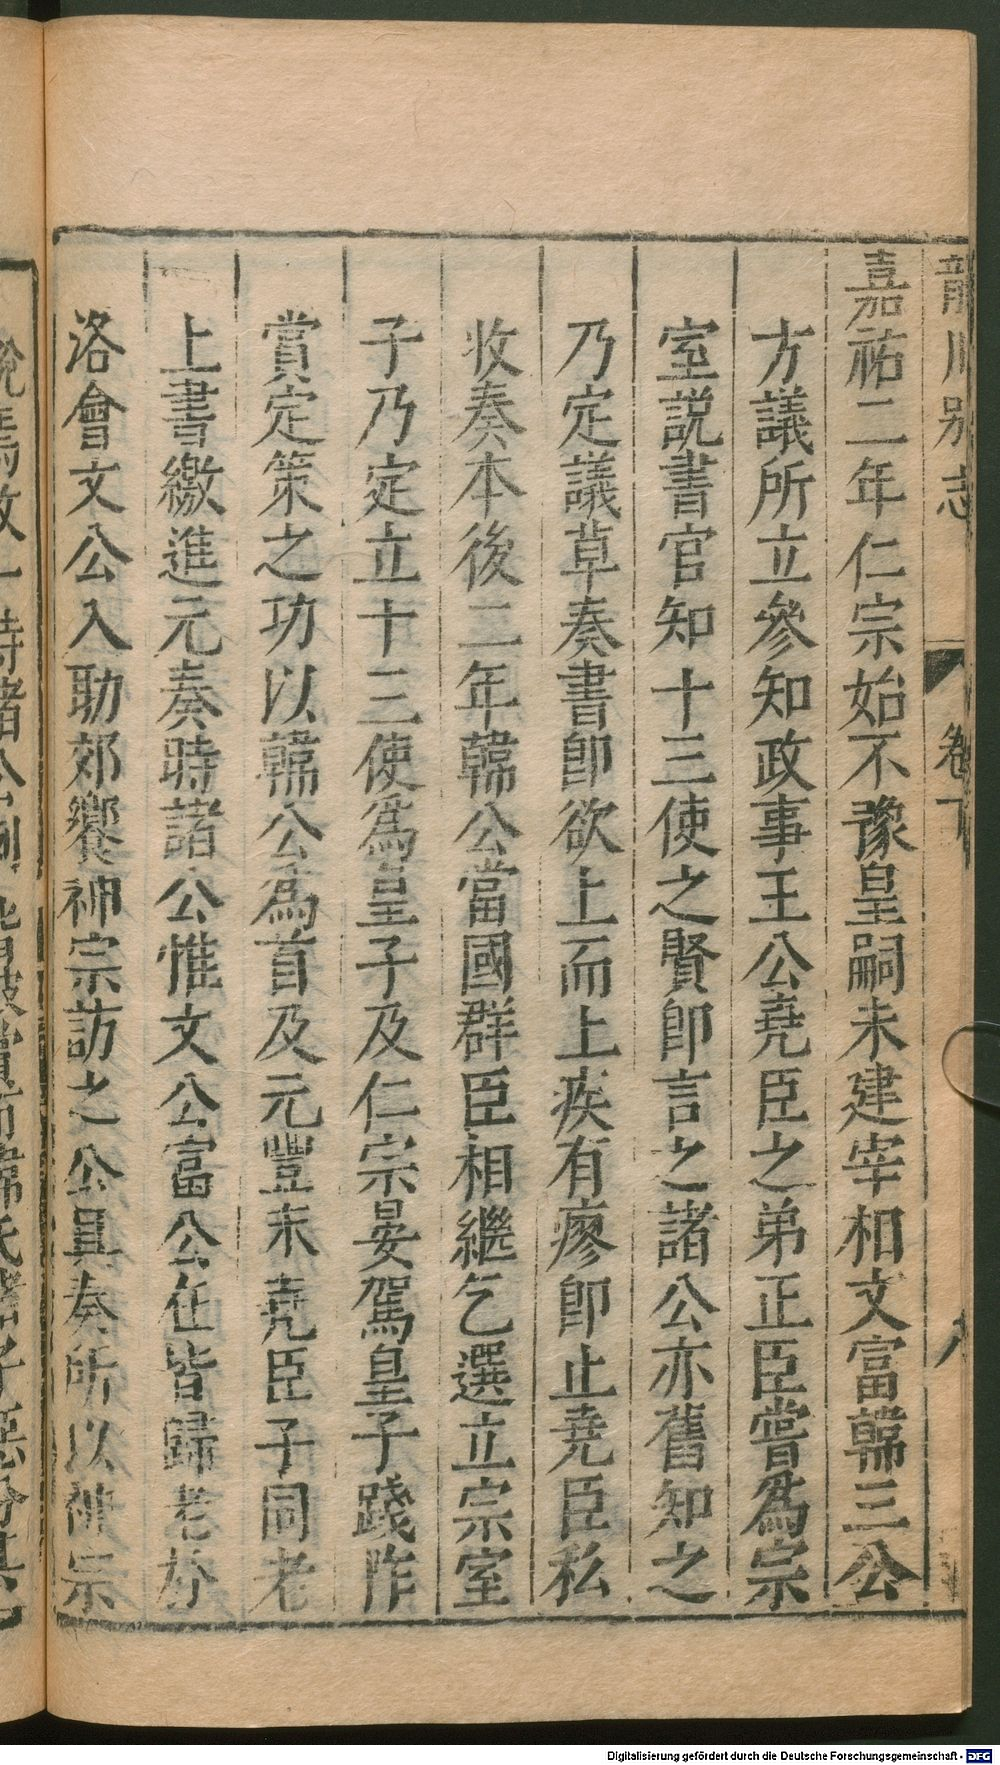 龍川别志
卷下
嘉祐二年仁宗始不豫皇嗣未建宰相文富韓三公
方議所立參知政事王公堯臣之弟正臣嘗爲宗
室説書官知十三使之賢卽言之諸公亦舊知之
乃定議草奏書卽欲上而上疾有瘳卽止堯臣私
收奏本後二年韓公當國群臣相繼乞選立宗室
子乃定立十三使爲皇子及仁宗晏駕皇子踐阼
賞定策之功以韓公爲首及元豐末堯臣子同老
上書繳進元奏時諸公惟文公富公在皆歸老於
洛會文公入助郊饗神宗訪之公具奏所以神宗
Digitalisierung gefördert durch die Deutsche Forschungsgemeinschaft - DFG